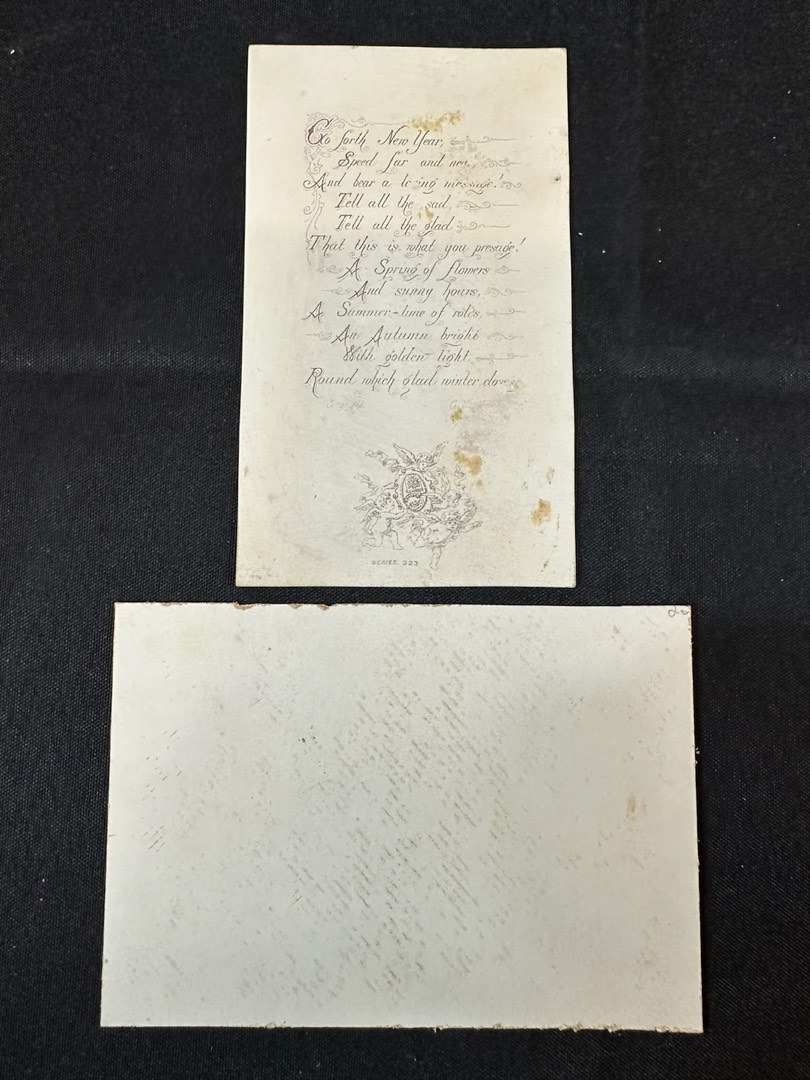 Go forth New Year,
Speed far and
And bear a message!
Tell all the sad,
Tell all the glad
That this is what you presage!
A Spring of flowers
And sunny hours,
A Summer-time of roses,
An Autumn bright
With golden light
Round which glad winter
SERIES 323